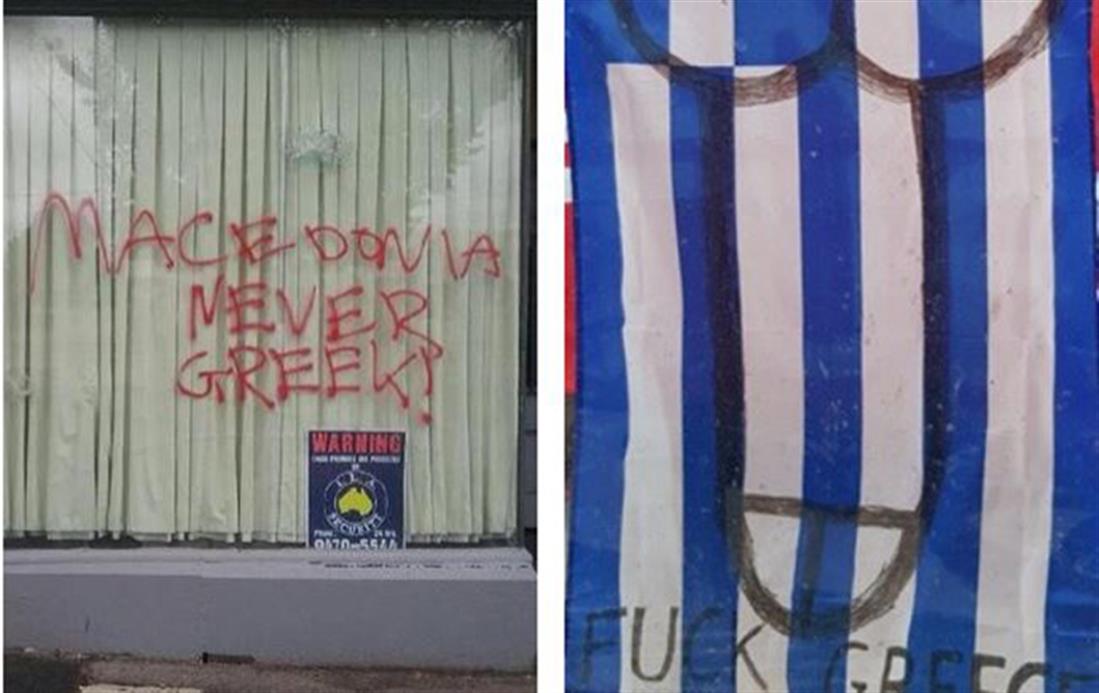 MACEDONIA
NEVER
GREEK!
WARNING
SECURITY
24 HRS
9470-5544
FUCK GREECE